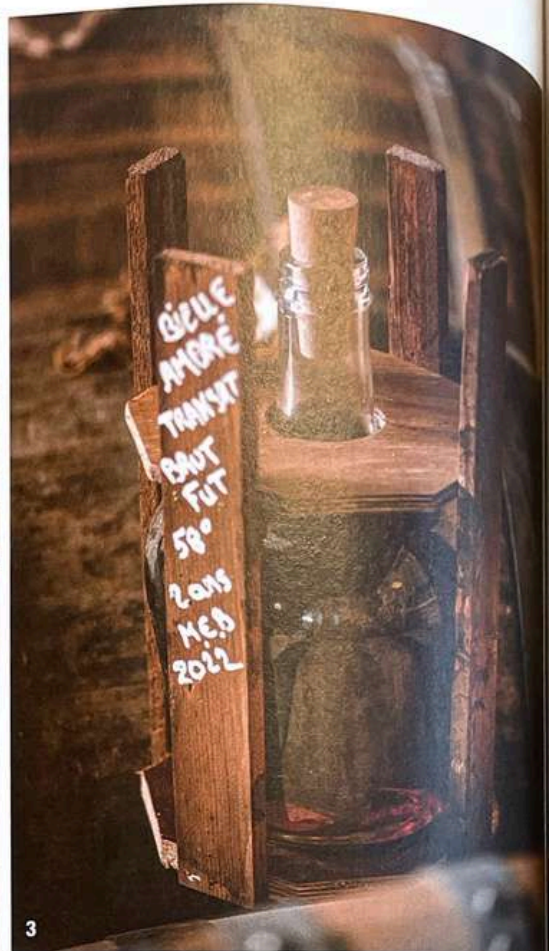 BIELLE
AMBRÉ
TRANSAT
BRUT
FUT
58°
2 ans
M.E.B
2022
3